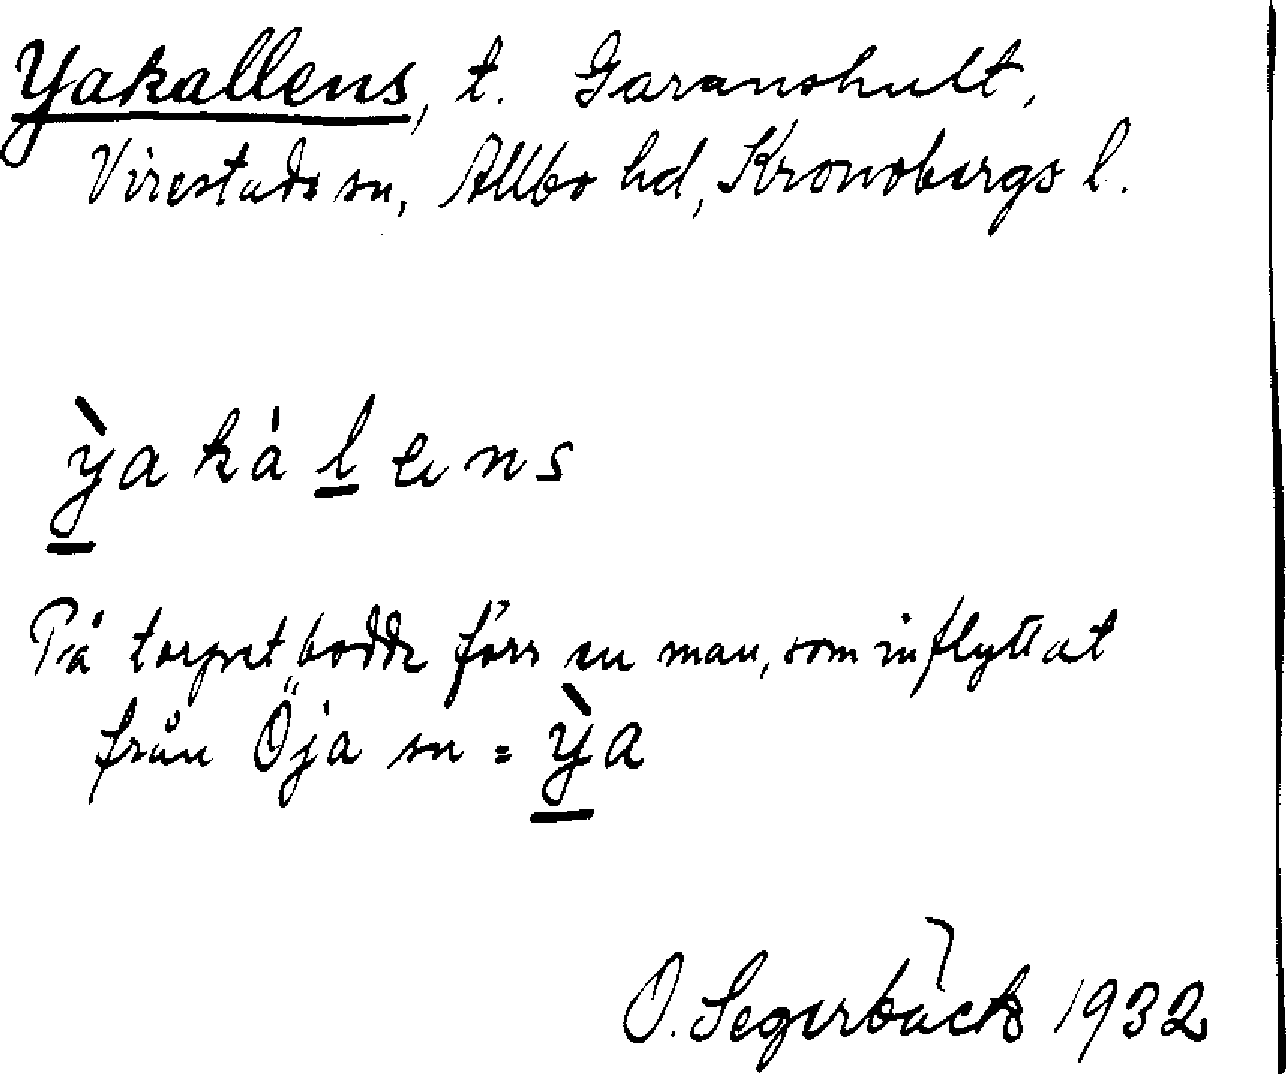 Yakallens, t. Garanshult,
Virestads sn, Allbo hd, Kronobergs l.
ỳa ká l ens
På torpet bodde förr en man, som inflyttat
från Öja sn = ỳa
O. Segerbäck 1932